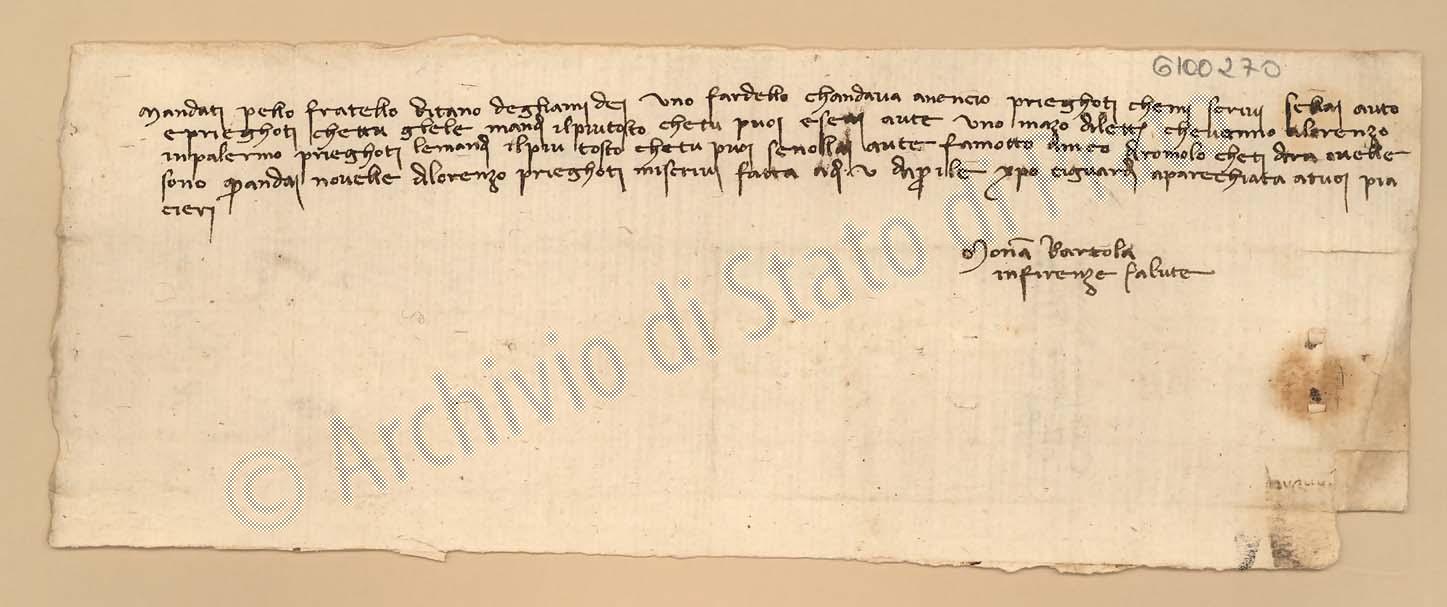 6100270
Mandati pello fratello ditano degliami dei uno fardello chandava a prieghoti chemi scrivi sellai auto
e prieghoti chettu gliele mandi ilpiutosto chetu puoi e se ai aute uno mazo dilettere chevenno alorenzo
inpalermo prieghoti lemandi ilpiu tosto chetu puoi senollai aute famotto diromolo cheti dira
sono quandai novelle dilorenzo prieghoti miscrivi fatta adi v daprile xpo tiguardi aparechiata atuoi pia
cieri
Monā Bartola
infirenze salute
© Archivio di Stato di